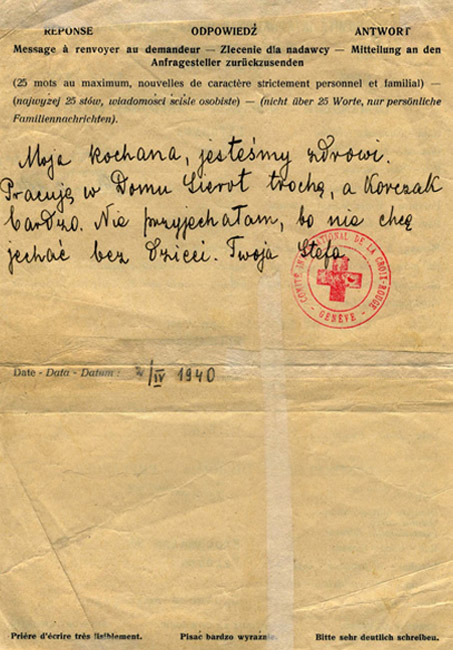 RÉPONSE ODPOWIEDŹ ANTWORT
Message à renvoyer au demandeur — Zlecenie dla nadawcy — Mitteilung an den
Anfragesteller zurückzusenden
(25 mots au maximum, nouvelles de caractère strictement personnel et familial) —
(najwyżej 25 stów, wiadomości ściśle osobiste) — (nicht über 25 Worte, nur persönliche
Familiennachrichten).
Moja kochana, jesteśmy zdrowi.
Pracuję w Domu Sierot trochę, a Korczak
bardzo. Nie przyjechałam, bo nie chcę
jechać bez dzieci. Twoja Stefa
COMITÉ INTERNATIONAL DE LA CROIX-ROUGE
- GENÈVE -
Date - Data - Datum : /IV 1940
Prière d'écrire très lisiblement. Pisać bardzo wyraźnie. Bitte sehr deutlich schreiben.